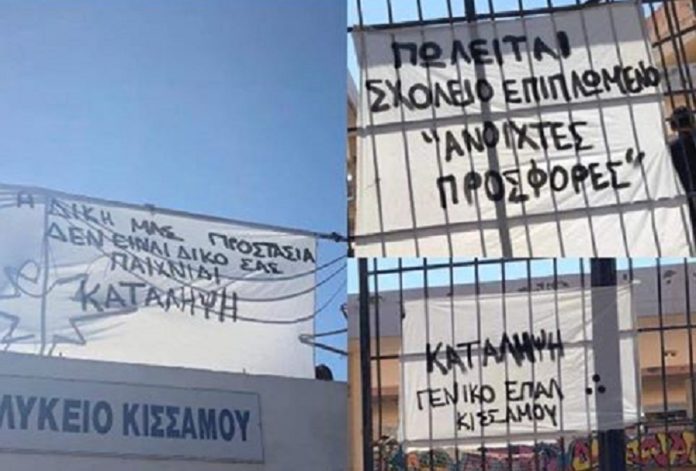 Η ΔΙΚΗ ΜΑΣ ΠΡΟΣΤΑΣΙΑ
ΔΕΝ ΕΙΝΑΙ ΔΙΚΟ ΣΑΣ
ΠΑΙΧΝΙΔΙ
ΚΑΤΑΛΗΨΗ
ΛΥΚΕΙΟ ΚΙΣΣΑΜΟΥ
ΠΩΛΕΙΤΑΙ
ΣΧΟΛΕΙΟ ΕΠΙΠΛΩΜΕΝΟ
"ΑΝΟΙΧΤΕΣ
ΠΡΟΣΦΟΡΕΣ"
ΚΑΤΑΛΗΨΗ
ΓΕΝΙΚΟ ΕΠΑΛ
ΚΙΣΣΑΜΟΥ